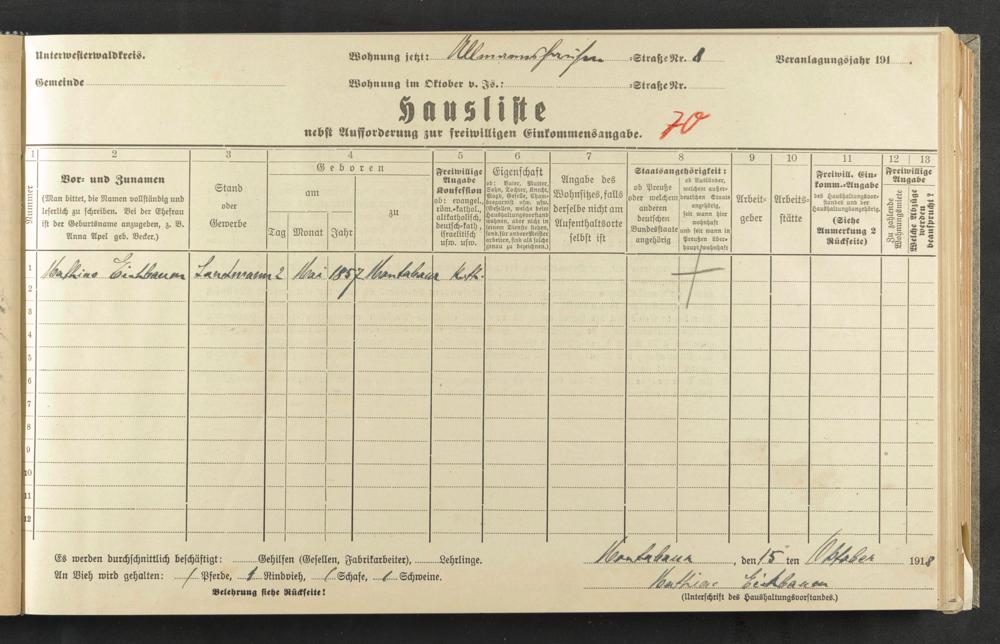 Unterwesterwaldkreis.
Wohnung jetzt: Straße Nr. 8
Veranlagungsjahr 191
Gemeinde
Wohnung im Oktober v. Js.: Straße Nr.
Hausliste
nebst Aufforderung zur freiwilligen Einkommensangabe.
70
1 2 3 4 5 6 7 8 9 10 11 12 13
Nummer
Vor- und Zunamen
(Man bittet, die Namen vollständig und
leserlich zu schreiben. Bei der Ehefrau
ist der Geburtsname anzugeben, z. B.
Anna Apel geb. Becker.)
Stand
oder
Gewerbe
Geboren
am
Tag Monat Jahr
zu
Freiwillige
Angabe
Konfession
ob: evangel.,
röm.-kathol.,
altkatholisch,
deutsch-kath.,
israelitisch
usw. usw.
Eigenschaft
ob: Vater, Mutter,
Sohn, Tochter, Knecht,
Magd, Geselle,
usw.
welche beim
Haushaltungsvorstand
wohnen, aber nicht in
seinem Dienste stehen,
sind für andere Meister
arbeiten, sind als solche
genau zu bezeichnen.)
Angabe des
Wohnsitzes, falls
derselbe nicht am
Aufenthaltsorte
selbst ist
Staatsangehörigkeit:
ob Preuße
oder welchem
anderen
deutschen
Bundesstaate
angehörig
ob Ausländer,
welchem außer-
deutschen Staate
angehörig,
seit wann hier
wohnhaft
und seit wann in
Preußen über-
haupt wohnhaft
Arbeit-
geber
Arbeits-
stätte
Freiwill. Ein-
komm.-Angabe
des Haushaltungsvor-
standes und der
Haushaltungsangehörig.
(Siehe
Anmerkung 2
Rückseite)
Freiwillige
Angabe
Zu zahlende
Wohnungsmiete
Welche Abzüge
werden
beansprucht?
1 Mathias Eichbaum Landmann 2 Mai 1857 Montabaur Kath.
2
3
4
5
6
7
8
9
10
11
12
Es werden durchschnittlich beschäftigt: Gehilfen (Gesellen, Fabrikarbeiter), Lehrlinge.
Montabaur, den 15 ten Oktober 1918
An Vieh wird gehalten: / Pferde, 1 Rindvieh, / Schafe, 1 Schweine.
Mathias Eichbaum
Belehrung siehe Rückseite!
(Unterschrift des Haushaltungsvorstandes.)